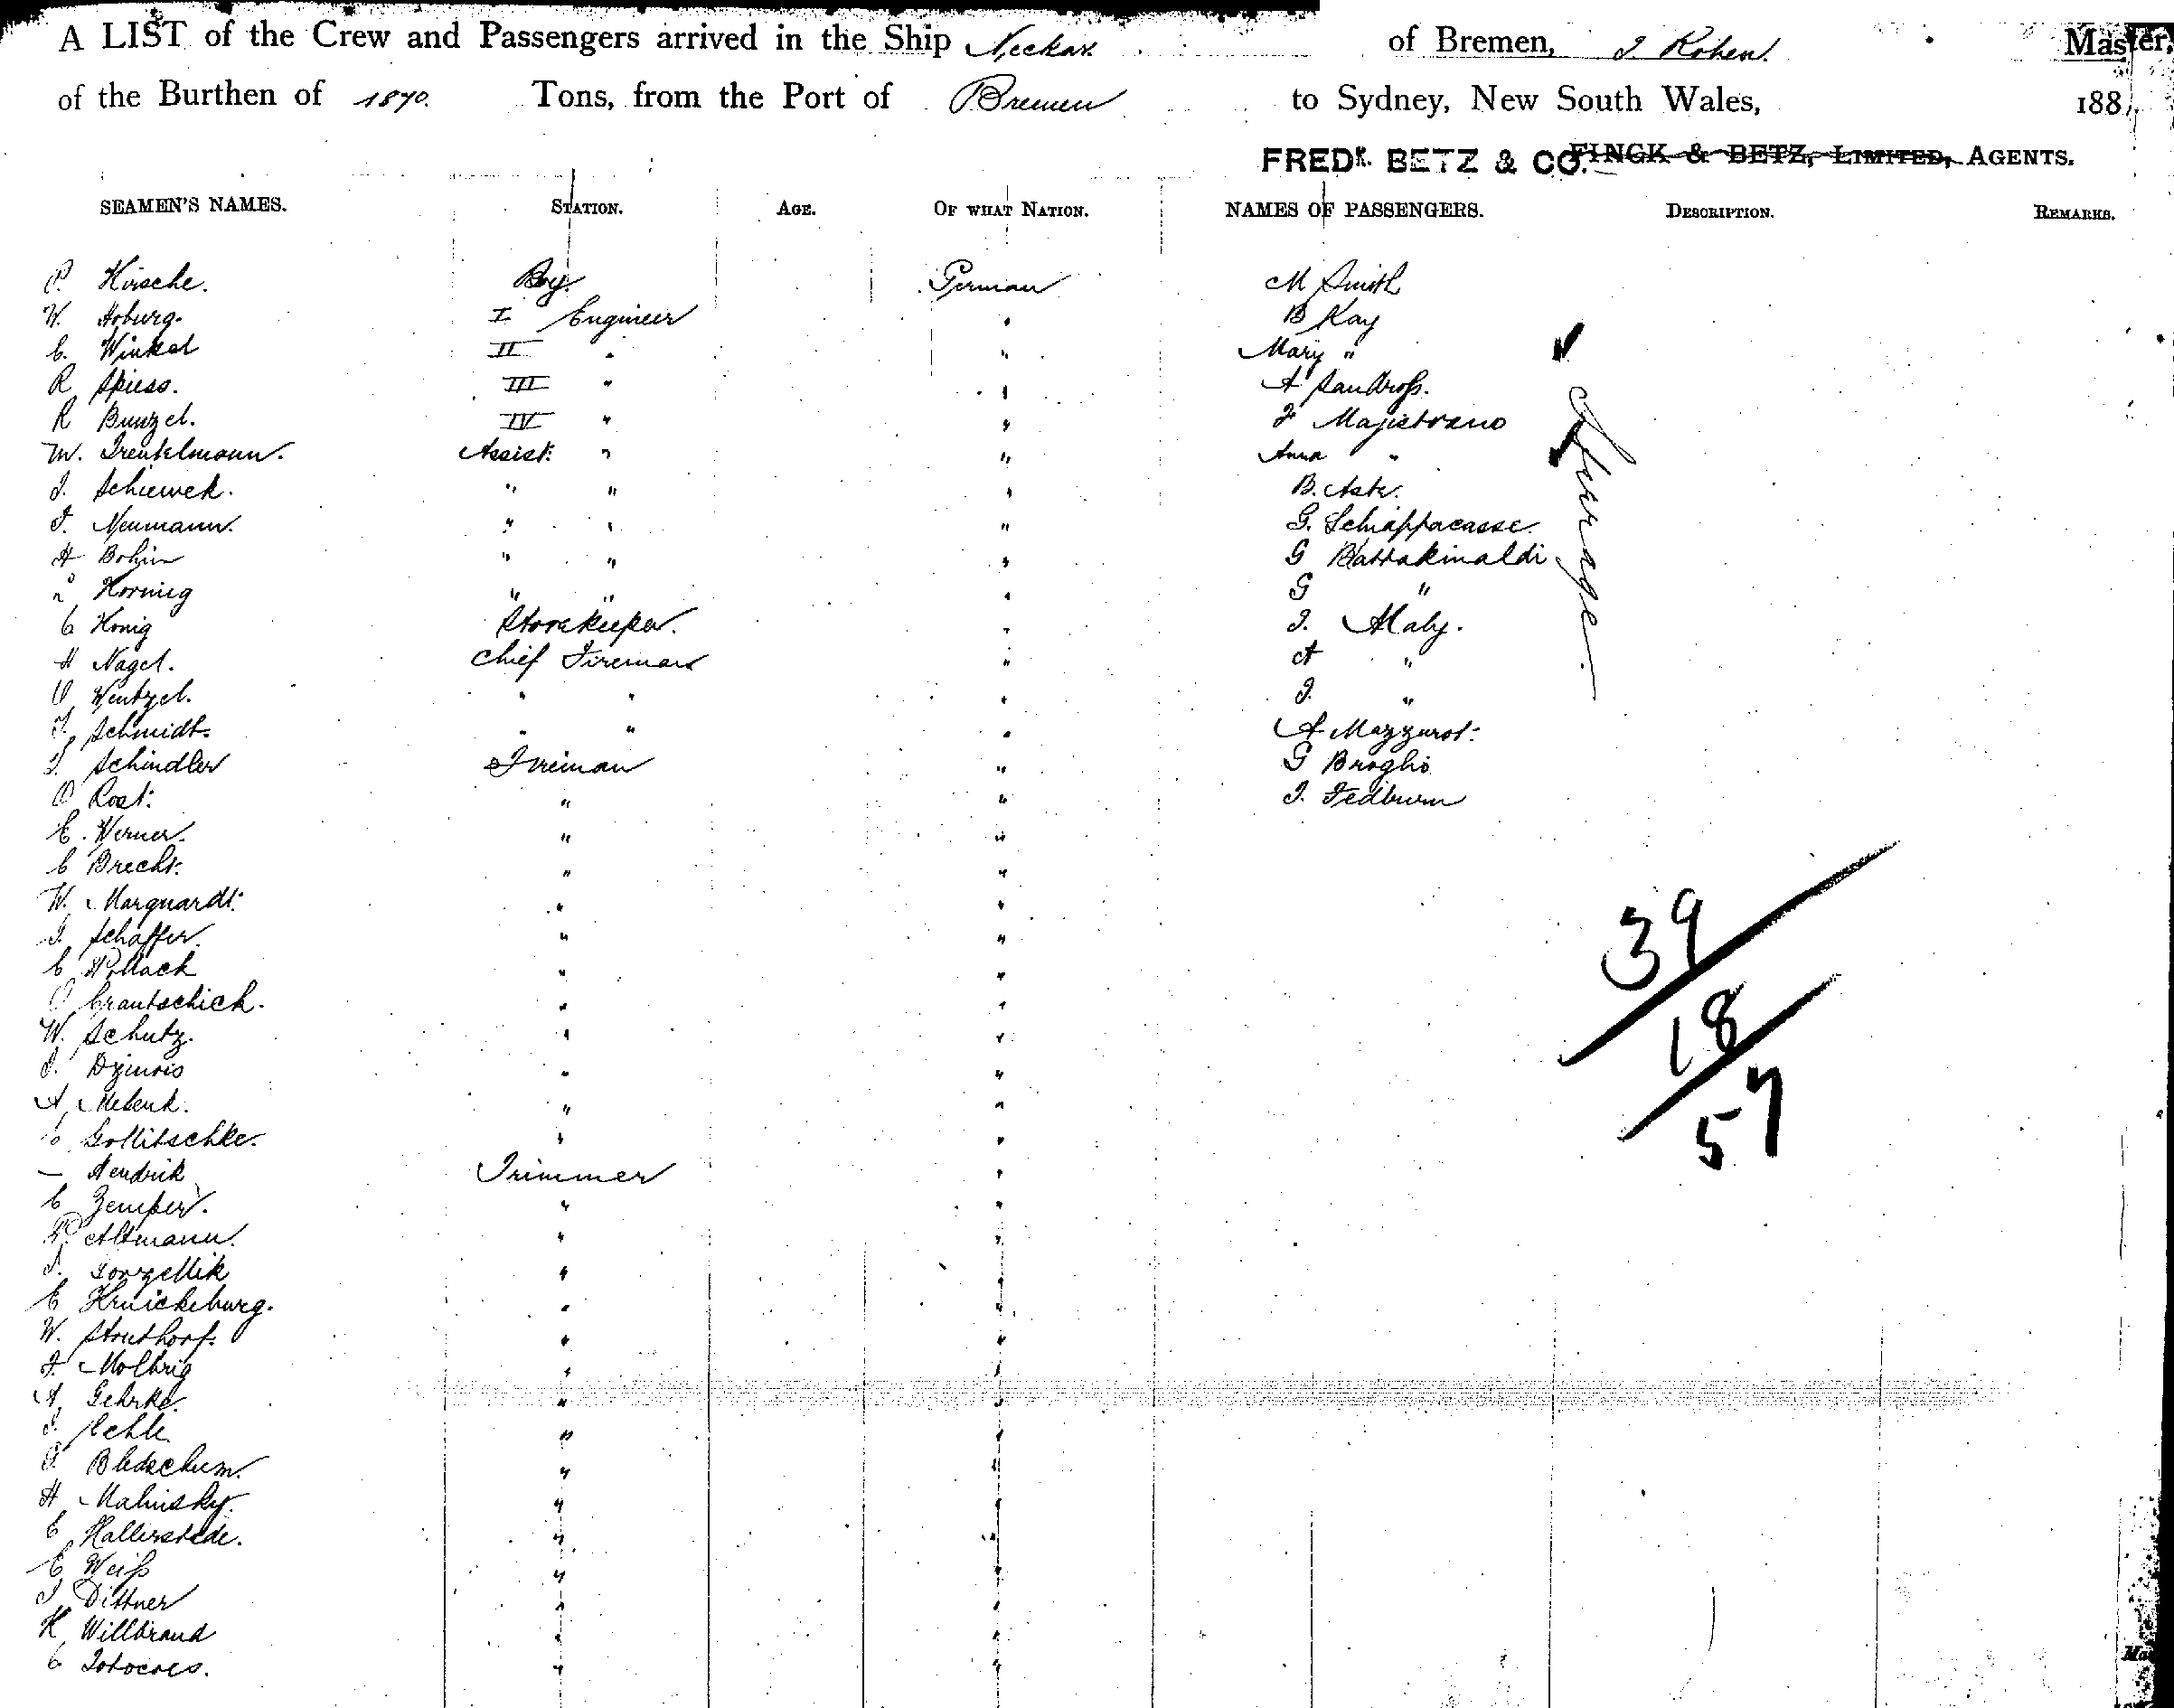 A LIST of the Crew and Passengers arrived in the Ship Neckar. of Bremen, J. Rohen. Master,
of the Burthen of 1870. Tons, from the Port of Bremen to Sydney, New South Wales, 188
FREDK. BETZ & CO. FINCK & BETZ, LIMITED, AGENTS.
SEAMEN'S NAMES. STATION. AGE. OF WHAT NATION. NAMES OF PASSENGERS. DESCRIPTION. REMARKS.
P. Hirsche. Boy. German M Smith
W. Hoburg. I Engineer " B Kay
C. Winkel II " " Mary "
R Spiess. III " " A Sandross.
R Bunzel. IV " " F Majistrano
W. Trentelmann. Assist: " " Anna "
J. Schiewek. " " " B. Aste.
J. Neumann. " " " G. Schiappacasse.
H Bohm " " " G Battakinaldi
Hornig " " " G "
C Honig Storekeeper. " J. Maly.
H Nagel. Chief Fireman " A "
O Wentzel. " " " J. "
F. Schmidt. " " " A Mazzurol:
J. Schindler Fireman " G Broglio
O Rost. " " J. Fedburn
Steerage.
E. Werner. " "
C Brecht. " "
W. Marquardt. " "
J. Schaffer. " "
C Pollack " "
O Crautschick. " "
W. Schutz. " "
J. "  "
A. " "
C Gollitschke. " "
— Hendrik Trimmer "
C Zemper. " "
P. Altmann. " "
" "
E Knickeburg. " "
W. Struthorf. " "
F. Molbrig " "
A. Gehrke. " "
J. Echle " "
" "
H. Malinsky. " "
C Hallerstede. " "
E Weiß " "
J Dittner " "
K Willbrand " "
C " "
39
18
57